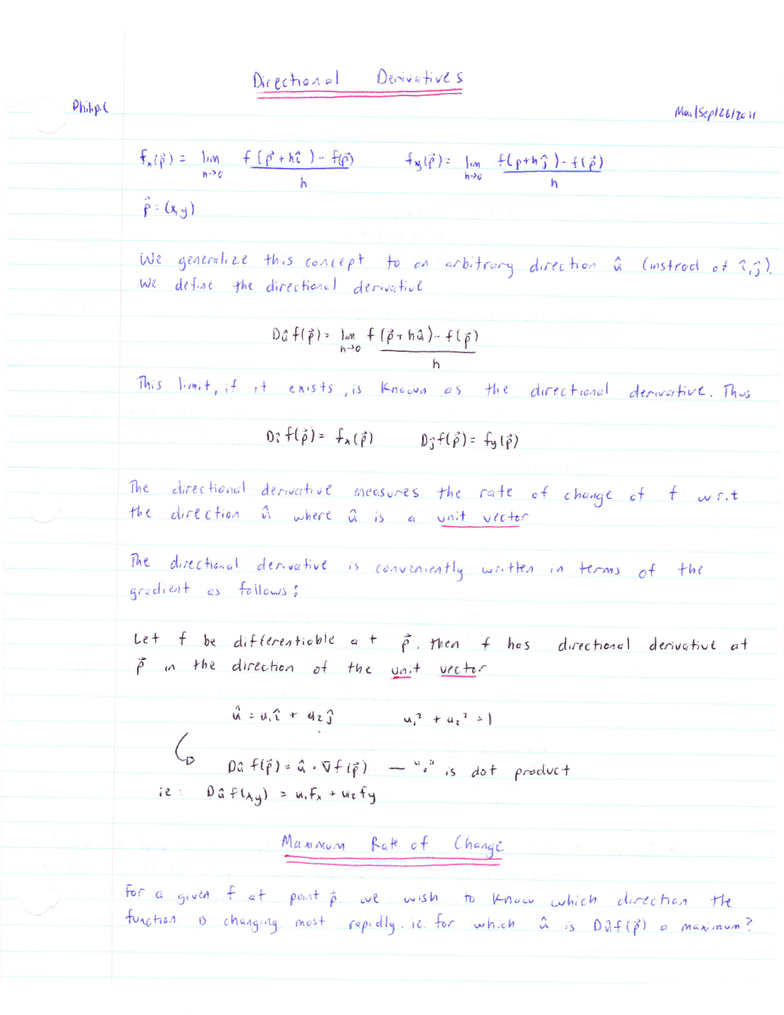 Directional Derivatives
Philip C
Mon/Sep/26/2011
fx(p⃗) = lim h→0 f(p⃗ + hî) - f(p⃗) / h    fy(p⃗) = lim h→0 f(p + hĵ) - f(p⃗) / h
p⃗ = (x,y)
We generalize this concept to an arbitrary direction û (instead of î,ĵ).
We define the directional derivative
Dûf(p⃗) = lim h→0 f(p⃗ + hû) - f(p⃗) / h
This limit, if it exists, is known as the directional derivative. Thus
Dîf(p⃗) = fx(p⃗)    Dĵf(p⃗) = fy(p⃗)
The directional derivative measures the rate of change of f w.r.t
the direction û where û is a unit vector
The directional derivative is conveniently written in terms of the
gradient as follows:
Let f be differentiable at p⃗. then f has directional derivative at
p⃗ in the direction of the unit vector
û = u₁î + u₂ĵ    u₁² + u₂² = 1
Dûf(p⃗) = û · ∇f(p⃗) — "·" is dot product
ie: Dûf(x,y) = u₁fx + u₂fy
Maximum Rate of Change
For a given f at point p⃗ we wish to know which direction the
function is changing most rapidly. ie. for which û is Dûf(p⃗) a maximum?